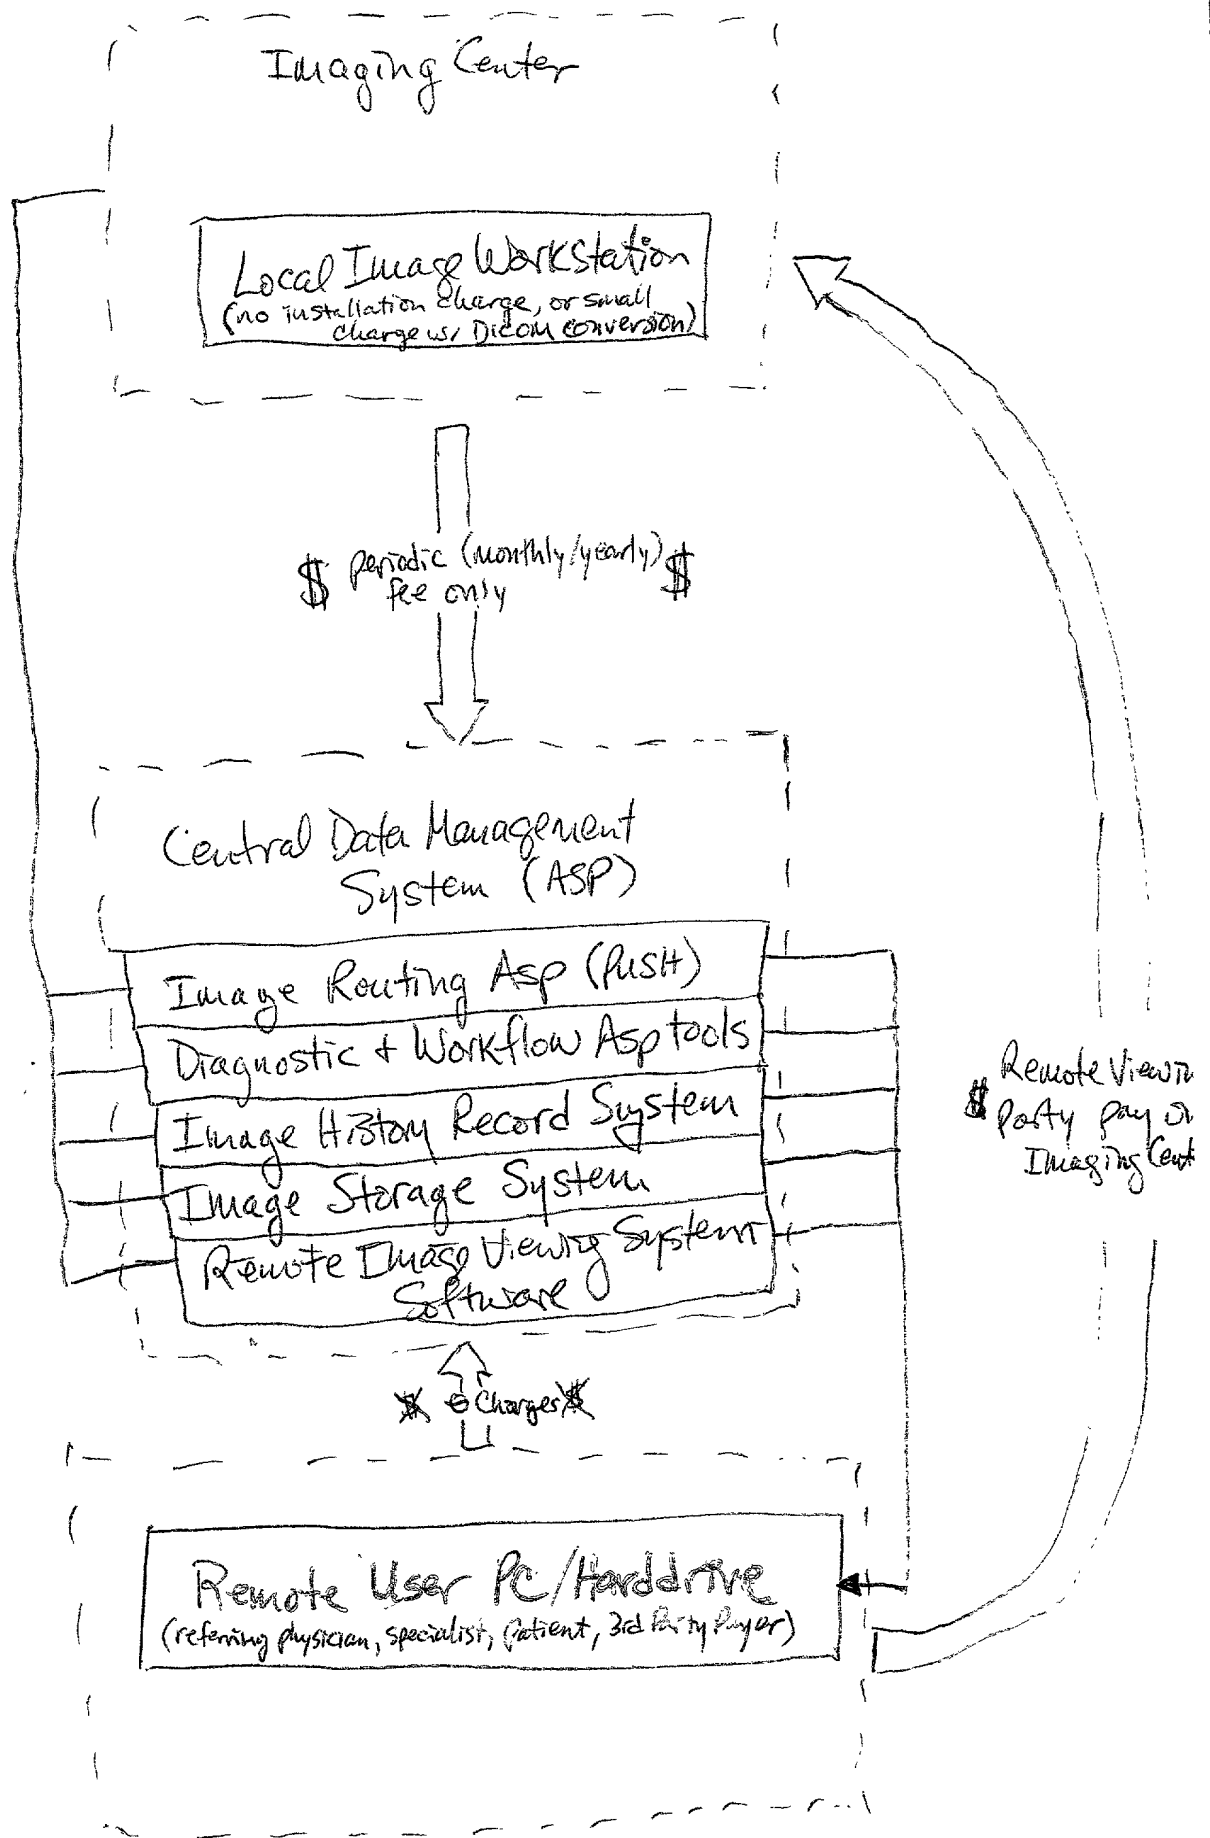 Imaging Center
Local Image Workstation
(no installation charge, or small
charge w/ Dicom conversion)
$ periodic (monthly/yearly) $
fee only
Central Data Management
System (ASP)
Image Routing Asp (PUSH)
Diagnostic + Workflow Asp tools
Image History Record System
Image Storage System
Remote Image Viewing System
Software
Remote Viewin
$ party pay
Imaging Cent
$ 0 Charges $
Remote User PC/Harddrive
(referring physician, specialist, patient, 3rd Party Payer)